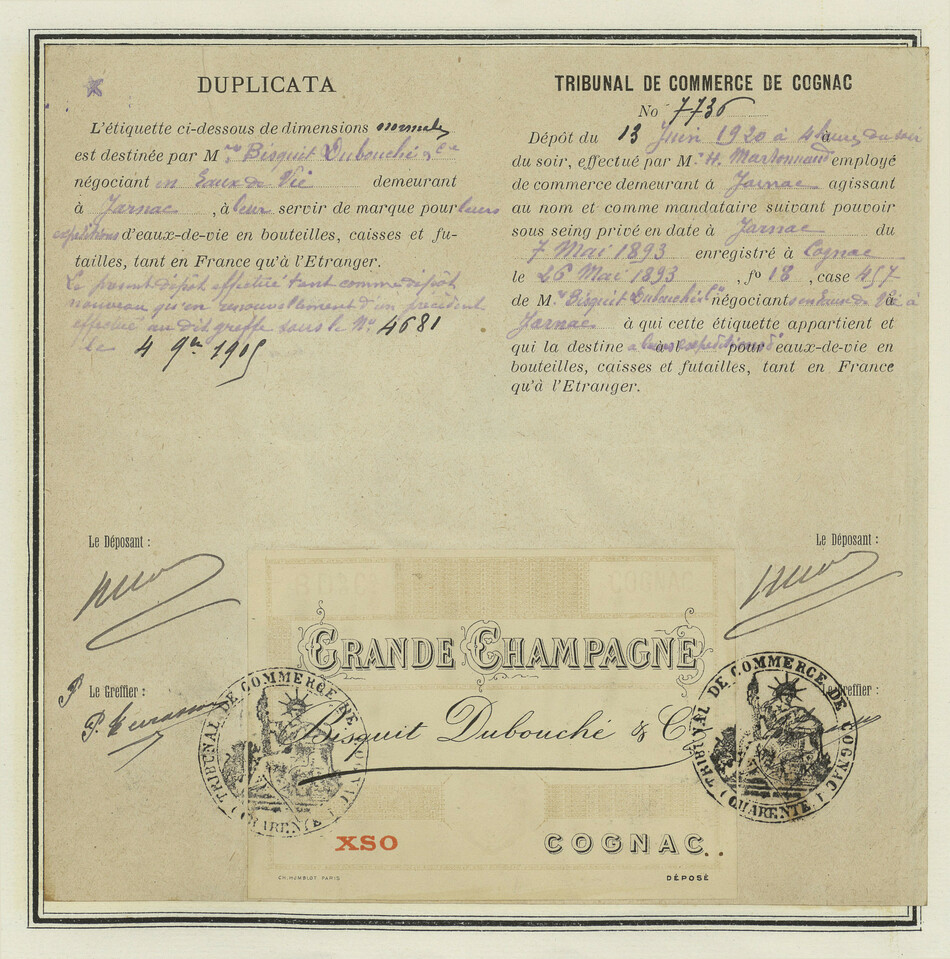 DUPLICATA
L'étiquette ci-dessous de dimensions normales
est destinée par M.rs Bisquit Dubouché & Cie
négociant en Eaux de Vie demeurant
à Jarnac, à leur servir de marque pour leurs
expéditions d'eaux-de-vie en bouteilles, caisses et fu-
tailles, tant en France qu'à l'Etranger.
Le présent dépôt effectué tant comme dépôt
nouveau qu'en renouvellement d'un précédent
effectué au dit greffe sous le No. 4681
le 4 9bre 1905
TRIBUNAL DE COMMERCE DE COGNAC
No 7736
Dépôt du 13 Juin 1920 à 4 heures du soir
du soir, effectué par M. H. employé
de commerce demeurant à Jarnac agissant
au nom et comme mandataire suivant pouvoir
sous seing privé en date à Jarnac du
7 Mai 1893 enregistré à Cognac
le 26 Mai 1893, fo 18, case 457
de M.rs Bisquit Dubouché & Cie négociants en Eaux de Vie à
Jarnac à qui cette étiquette appartient et
qui la destine a leurs expéditions d'eaux-de-vie en
bouteilles, caisses et futailles, tant en France
qu'à l'Etranger.
Le Déposant :
Le Déposant :
GRANDE CHAMPAGNE
P. Le Greffier :
Greffier :
Bisquit Dubouché & Co
TRIBUNAL DE COMMERCE DE COGNAC
(CHARENTE)
TRIBUNAL DE COMMERCE DE COGNAC
(CHARENTE)
XSO
COGNAC
CH. HUMBLOT PARIS
DÉPOSÉ